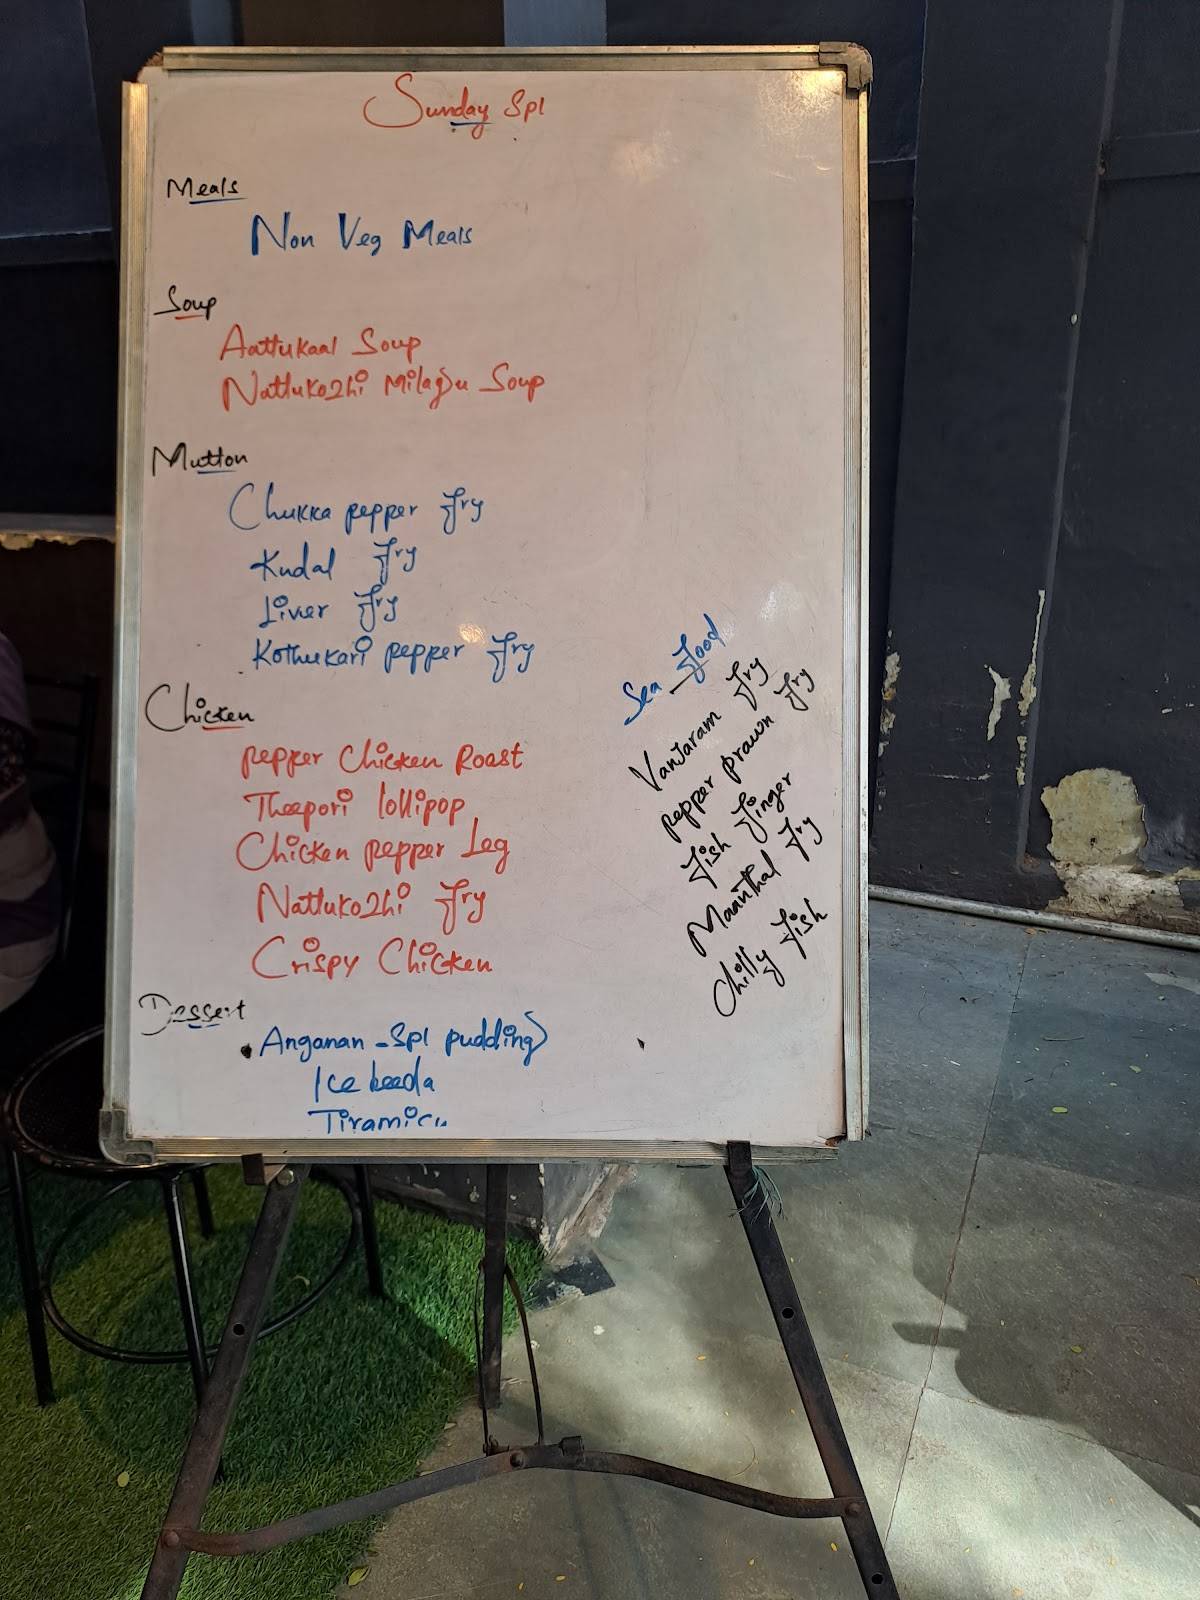 Sunday Spl
Meals
Non Veg Meals
Soup
Aattukaal Soup
Nattukozhi Milagu Soup
Mutton
Chukka pepper fry
Kudal fry
Liver fry
Kothukari pepper fry
Chicken
pepper Chicken Roast
Theepori lollipop
Chicken pepper Leg
Nattukozhi fry
Crispy Chicken
Dessert
Anganan - Spl pudding
Ice beeda
Tiramicu
Sea food
Vanjaram fry
pepper prawn fry
fish finger
Maanthal fry
Chilly fish